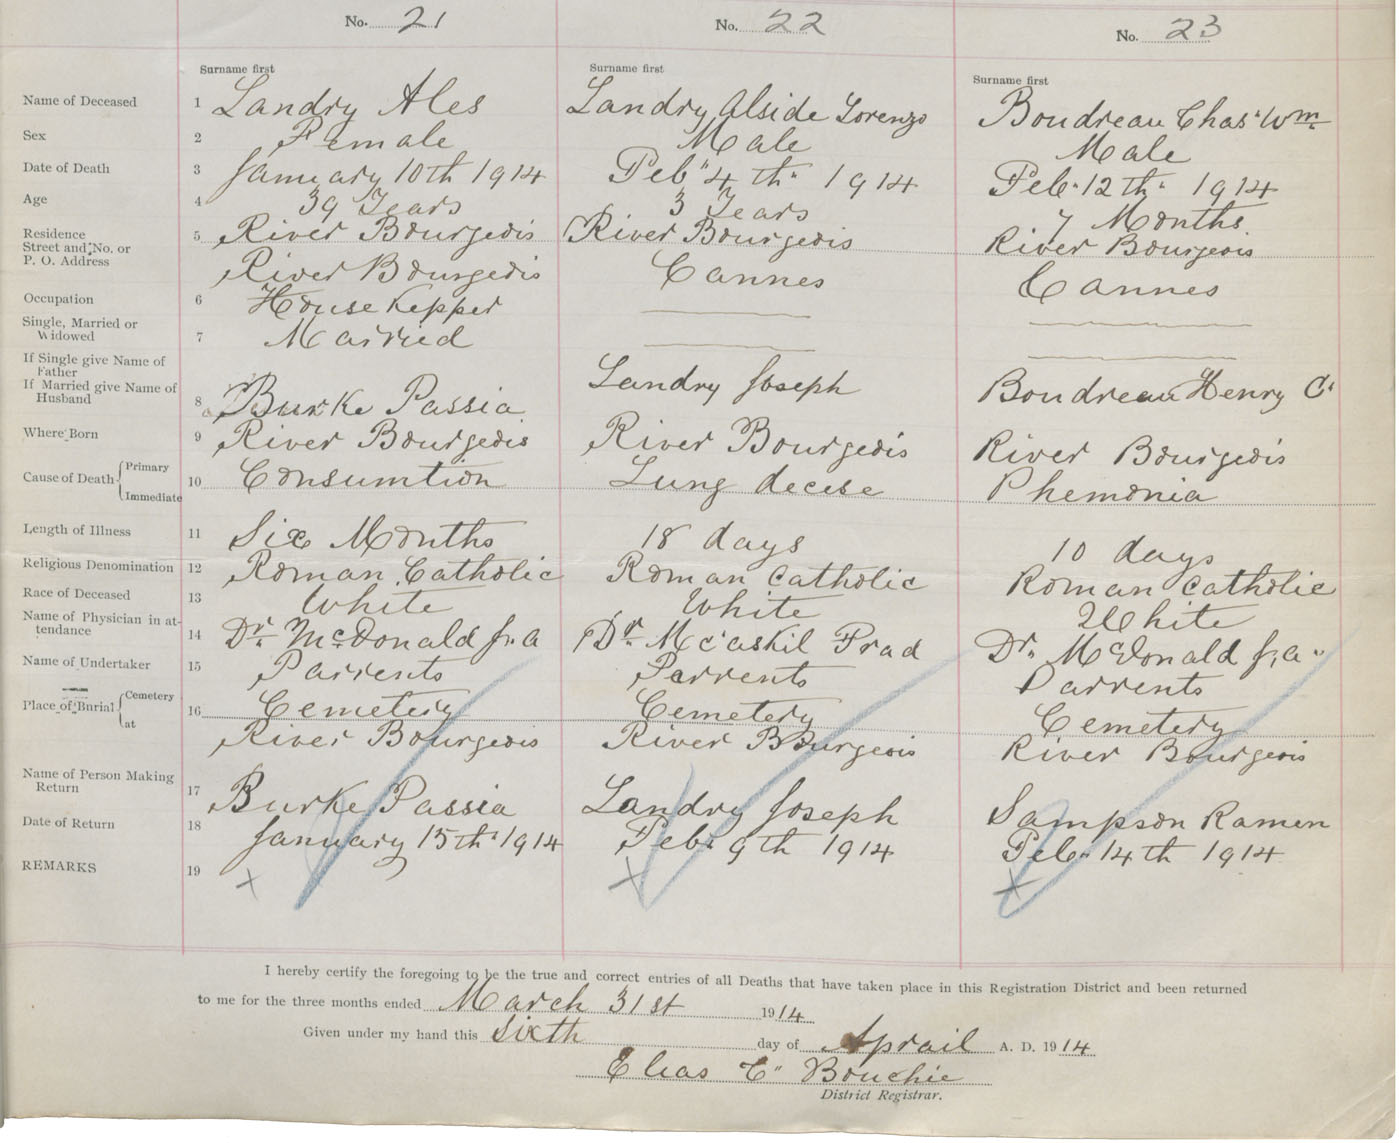 No. 21 No. 22 No. 23
Surname first Surname first Surname first
Name of Deceased 1 Landry Ales Landry Alside Lorenzo Boudreau Chas Wm
Sex 2 Female Male Male
Date of Death 3 January 10th 1914 Feb 4th 1914 Feb 12th 1914
Age 4 39 Years 3 Years 7 Months
Residence
Street and No. or 5 River Bourgeois River Bourgeois River Bourgeois
P. O. Address River Bourgeois Cannes Cannes
Occupation 6 House Kepper
Single, Married or
Widowed 7 Married
If Single give Name of
Father
If Married give Name of
Husband 8 Burke Passia Landry Joseph Boudreau Henry C
Where Born 9 River Bourgeois River Bourgeois River Bourgeois
Cause of Death Primary
10 Consumtion Lung decese Phemonia
Immediate
Length of Illness 11 Six Months 18 days 10 days
Religious Denomination 12 Roman Catholic Roman Catholic Roman Catholic
Race of Deceased 13 White White White
Name of Physician in at-
tendance 14 Dr. McDonald Dr. McCaskil Dr. McDonald
Name of Undertaker 15 Parrents Parrents Parrents
Place of Burial Cemetery 16 Cemetery Cemetery Cemetery
at River Bourgeois River Bourgeois River Bourgeois
Name of Person Making
Return 17 Burke Passia Landry Joseph Sampson Ramen
Date of Return 18 January 15th 1914 Feb. 9th 1914 Feb. 14th 1914
REMARKS 19 x x x
I hereby certify the foregoing to be the true and correct entries of all Deaths that have taken place in this Registration District and been returned
to me for the three months ended March 31st 1914
Given under my hand this Sixth day of Aprail A. D. 1914
Elias C Bouchie
District Registrar.